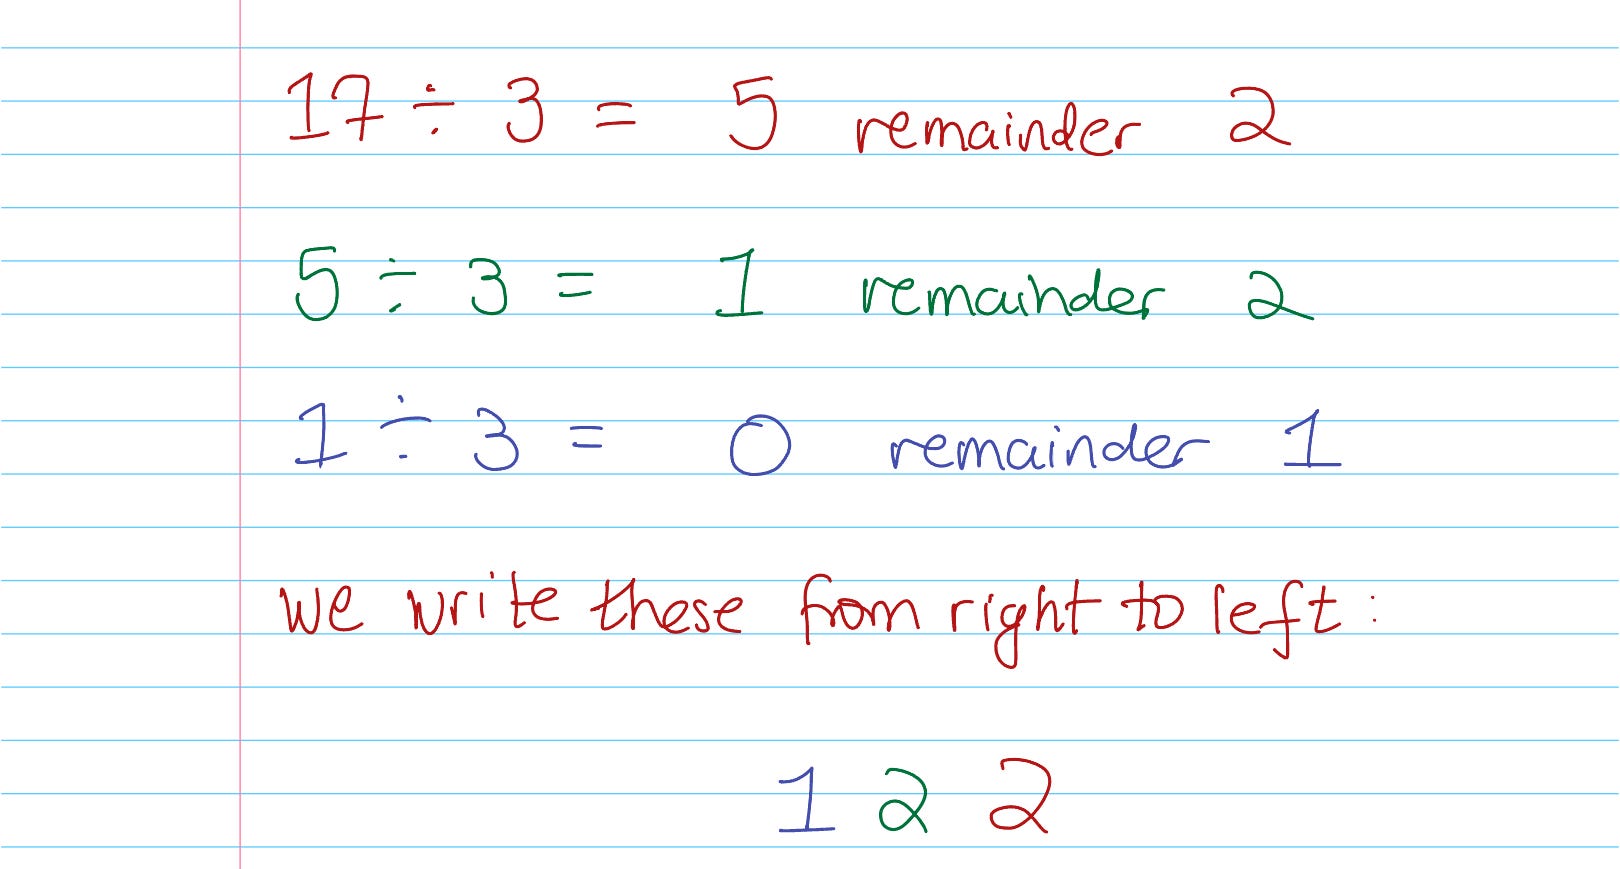 17 ÷ 3 = 5 remainder 2
5 ÷ 3 = 1 remainder 2
1 ÷ 3 = 0 remainder 1
we write these from right to left:
1 2 2